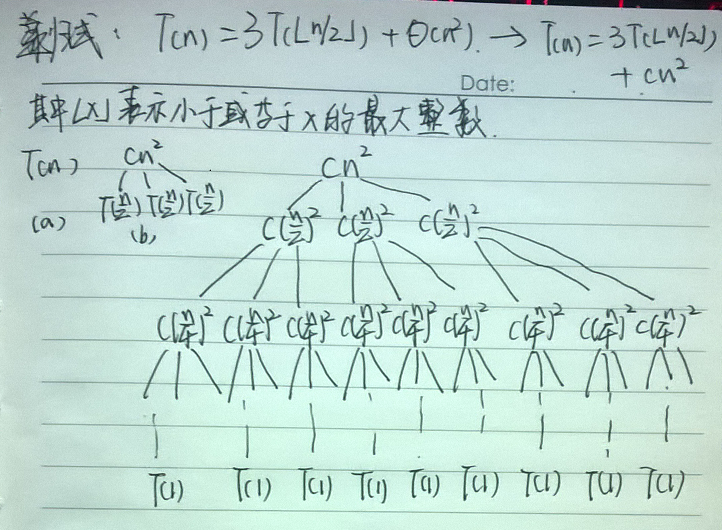 递归式: T(n) = 3T(⌊n/2⌋) + Θ(n²). → T(n) = 3T(⌊n/2⌋)
+ cn²
Date:
其中⌊x⌋表示小于或等于x的最大整数.
T(n) cn² cn²
T(n/2) T(n/2) T(n/2)
(a) (b) c(n/2)² c(n/2)² c(n/2)²
c(n/4)² c(n/4)² c(n/4)² c(n/4)² c(n/4)² c(n/4)² c(n/4)² c(n/4)² c(n/4)²
T(1) T(1) T(1) T(1) T(1) T(1) T(1) T(1) T(1)